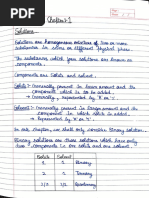 Chapter-1
Solutions
Solutions are homogeneous mixture of two or more
substances in same or different physical phase.
The substances which form solutions are known as
components.
Components are Solute and Solvent.
Solute → Generally present in lesser amount and the
component which is added to it.
→ Generally represented by 'B' or '2'.
Solvent → Generally present in larger amount and the
component in which solute is added to.
→ Generally represented by 'A' or '1'.
In this chapter, we shall only consider binary solution.
Binary solutions are those solutions which have only
two components i.e. one is solute and one solvent.
Solute Solvent
1 1 Binary
2 1 Ternary
1/2 1/2 Quaternary